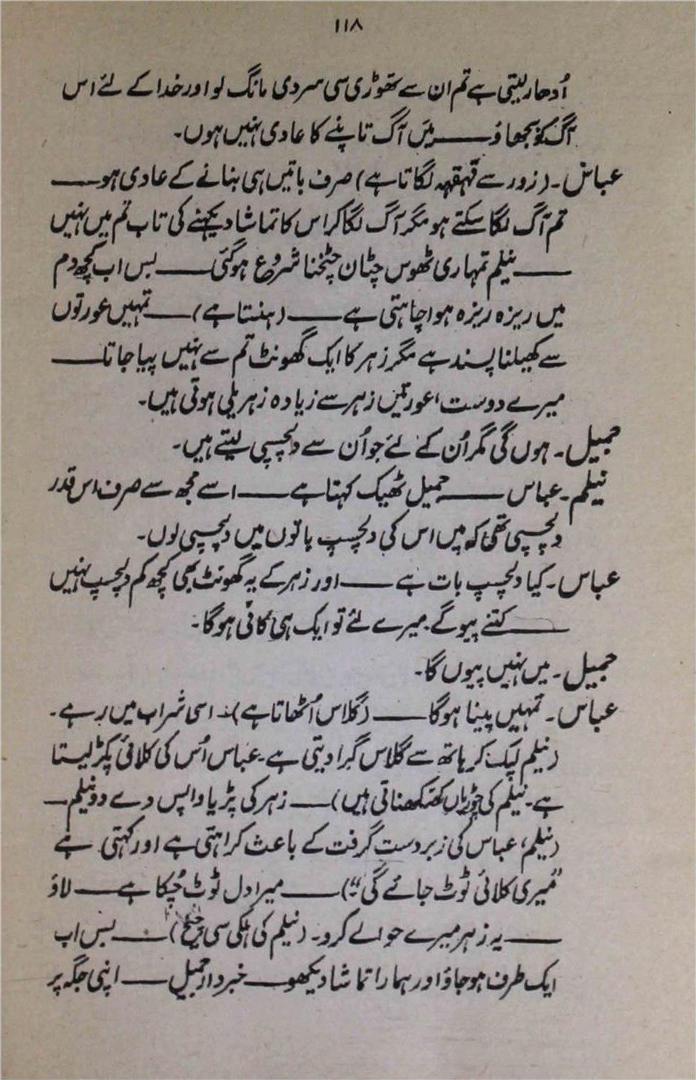 ۱۱۸
اُدھار لیتی ہے تم ان سے تھوڑی سی سردی مانگ لو اور خدا کے لئے اس
آگ کو بجھاؤ ــــ میں آگ تاپنے کا عادی نہیں ہوں۔
عباس۔ (زور سے قہقہہ لگاتا ہے) صرف باتیں ہی بنانے کے عادی ہو ــــ
تم آگ لگا سکتے ہو مگر آگ لگا کر اس کا تماشا دیکھنے کی تاب تم میں نہیں
ــــ نیلم تمہاری ٹھوس چٹان چٹخنا شروع ہو گئی ــــ بس اب کچھ دم
میں ریزہ ریزہ ہوا چاہتی ہے ــــ (ہنستا ہے) ــــ تمہیں عورتوں
سے کھیلنا پسند ہے مگر زہر کا ایک گھونٹ تم سے نہیں پیا جاتا ــــ
میرے دوست، عورتیں زہر سے زیادہ زہریلی ہوتی ہیں۔
جمیل۔ ہوں گی مگر اُن کے لئے جو اُن سے دلچسپی لیتے ہیں۔
نیلم۔ عباس ــــ جمیل ٹھیک کہتا ہے ــــ اسے مجھ سے صرف اس قدر
دلچسپی تھی کہ میں اس کی دلچسپ باتوں میں دلچسپی لوں۔
عباس۔ کیا دلچسپ بات ہے ــــ اور زہر کے یہ گھونٹ بھی کچھ کم دلچسپ نہیں
ــــ کتنے پیو گے۔ میرے لئے تو ایک ہی کافی ہو گا۔
جمیل۔ میں نہیں پیوں گا۔
عباس۔ تمہیں پینا ہو گا ــــ (گلاس اُٹھاتا ہے)۔ اسی شراب میں رہے۔
(نیلم لپک کر ہاتھ سے گلاس گرا دیتی ہے۔ عباس اُس کی کلائی پکڑ لیتا
ہے۔ نیلم کی چوڑیاں کھنکھناتی ہیں) ــــ زہر کی پڑیا واپس دے دو نیلم ــــ
(نیلم، عباس کی زبردست گرفت کے باعث کراہتی ہے اور کہتی ہے
"میری کلائی ٹوٹ جائے گی۔") ــــ میرا دل ٹوٹ چکا ہے ــــ لاؤ
ــــ یہ زہر میرے حوالے کر دو۔ (نیلم کی ہلکی سی چیخ) ــــ بس اب
ایک طرف ہو جاؤ اور ہمارا تماشا دیکھو ــــ خبردار جمیل ــــ اپنی جگہ پر